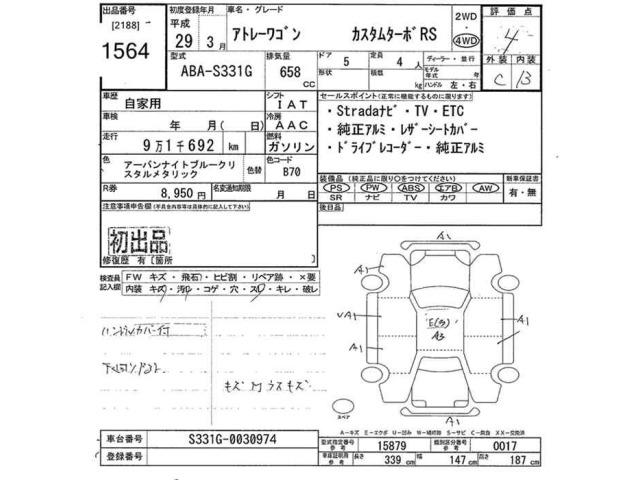 出品番号 初度登録年月 車名・グレード 2WD 評価点
[2188] 平成 アトレーワゴン カスタムターボRS 4WD 4
1564 29年 3月
型式 排気量 ドア 5 定員 4人 ディーラー・並行 外装 内装
ABA-S331G 658 CC 形状 積載 kg モデル年式 年 ハンドル 左・右 C B
車歴 シフト セールスポイント(正常に機能するものに限ります)
自家用 IAT ・Stradaナビ・TV・ETC
車検 年 月(日) 冷房 AAC ・純正アルミ・レザーシートカバー
走行 9万1千692 km 燃料 ガソリン ・ドライブレコーダー・純正アルミ
色 アーバンナイトブルークリスタルメタリック 色替 色コード B70
装備品(純正品に限り○をつけてください) 新車保証書
R券 8,950円 名変通知期限 月 日 PS PW ABS エアB AW 有・無
SR ナビ TV カワ
注意事項申告欄(不具合内容等は具体的に記入して下さい) 後日品
初出品
修復歴 有[箇所
検査員記入欄 FW キズ・飛石・ヒビ割・リペア跡・×要
内装 キズ・汚レ・コゲ・穴・スレ・キレ・破レ
ハンドルカバー付
キズ 凹 ウスキズ
A1
A1 A1
VA1 E(3) A1
A1 A3 A1
A1
スペア
A-キズ E-エクボ U-凹み W-補修跡 S-サビ C-腐食 XX-交換済
車台番号 S331G-0030974 型式指定番号 参考 15879 類別区分番号 参考 0017
登録番号 車庫証明用 参考 長さ 339 cm 幅 147 cm 高さ 187 cm